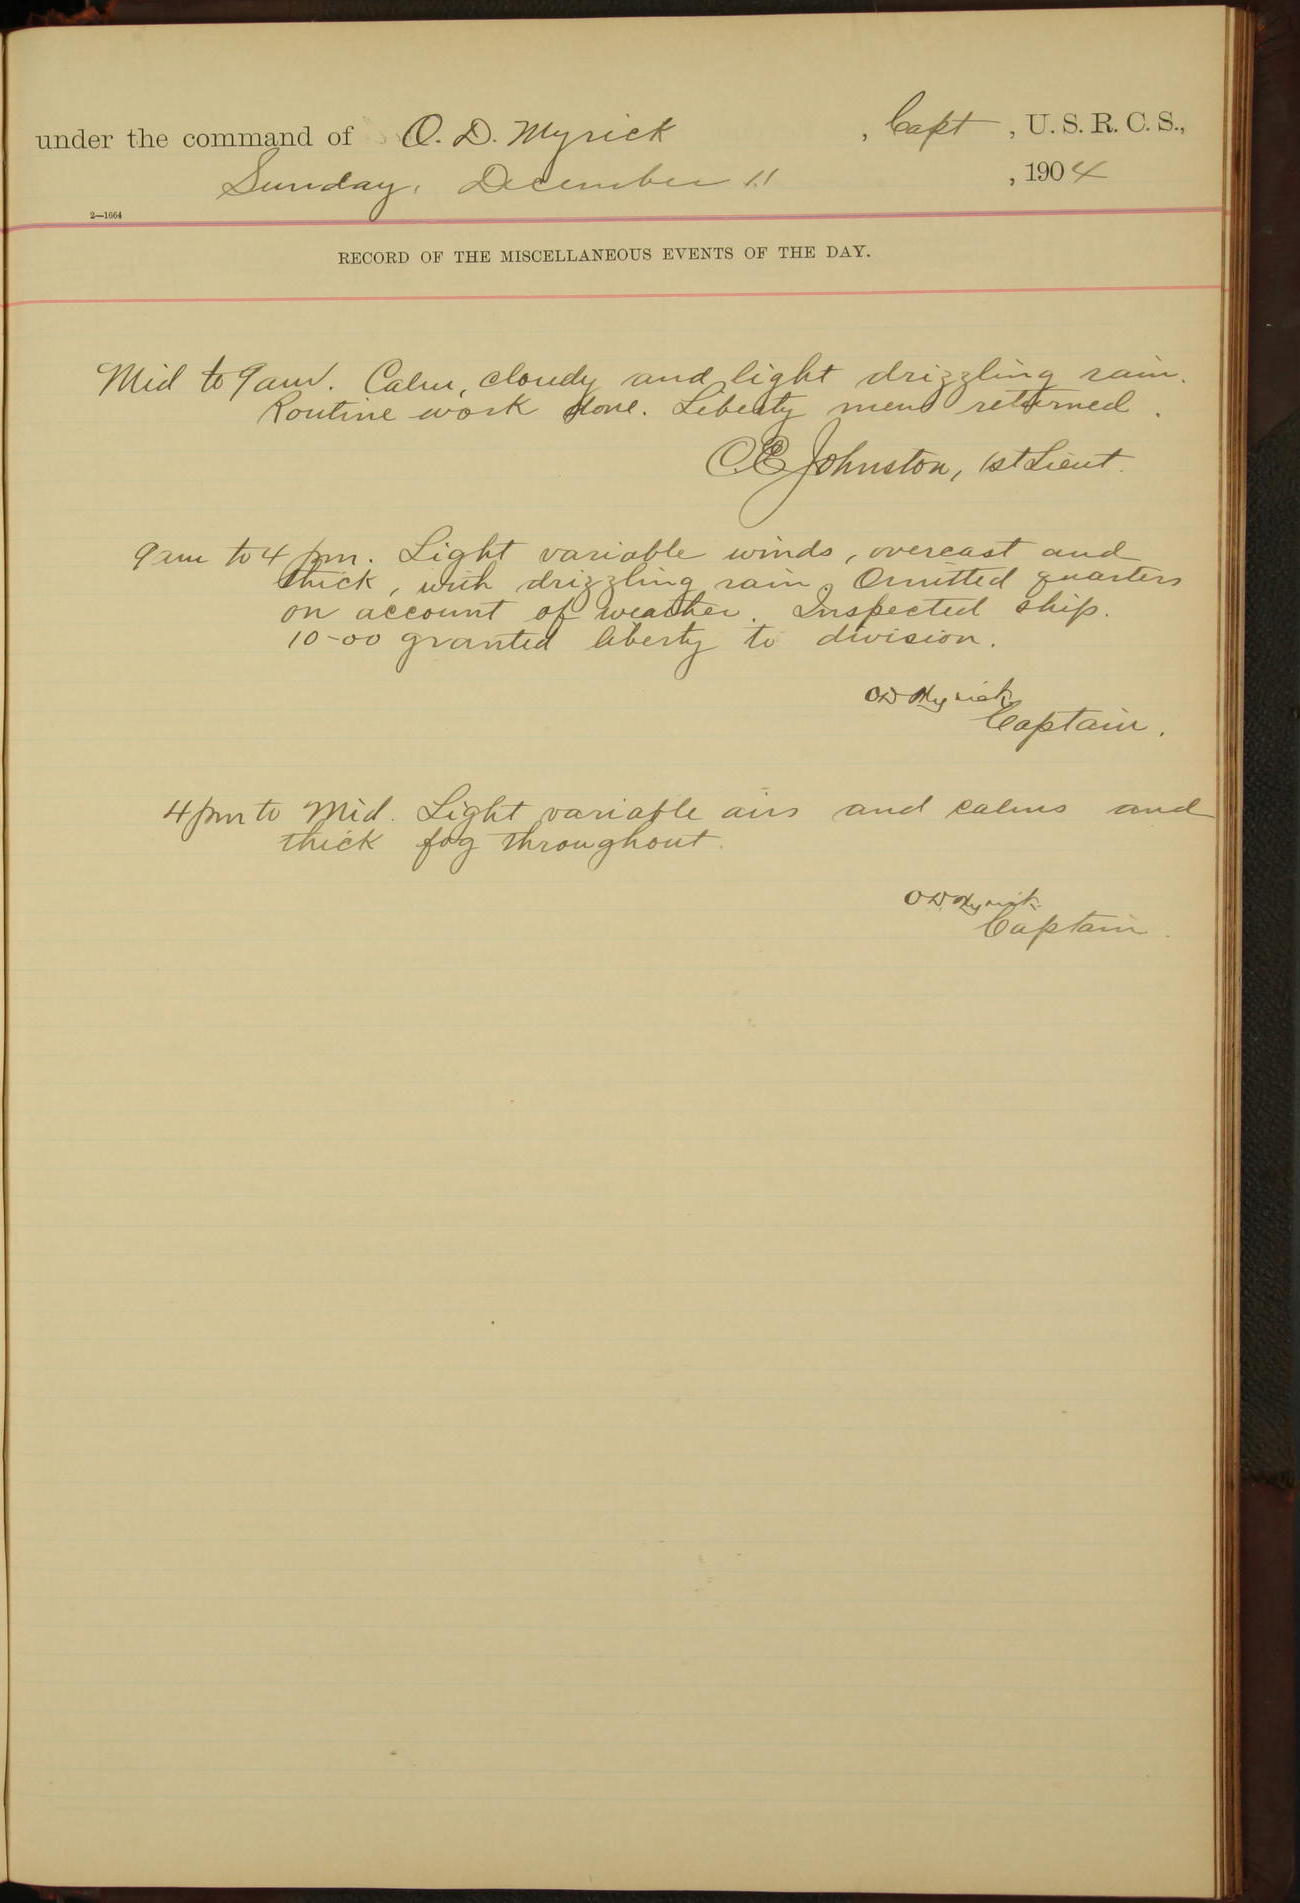 under the command of O. D. Myrick , Capt , U. S. R. C. S.,
Sunday, December 11 , 1904
2—1664
RECORD OF THE MISCELLANEOUS EVENTS OF THE DAY.
Mid to 9 am. Calm, cloudy and light drizzling rain.
Routine work done. Liberty men returned.
C.E. Johnston, 1st Lieut.
9 am to 4 pm. Light variable winds, overcast and
thick, with drizzling rain. Omitted quarters
on account of weather. Inspected ship.
10-00 granted liberty to division.
O D Myrick
Captain.
4 pm to Mid. Light variable airs and calms and
thick fog throughout.
O D Myrick
Captain.